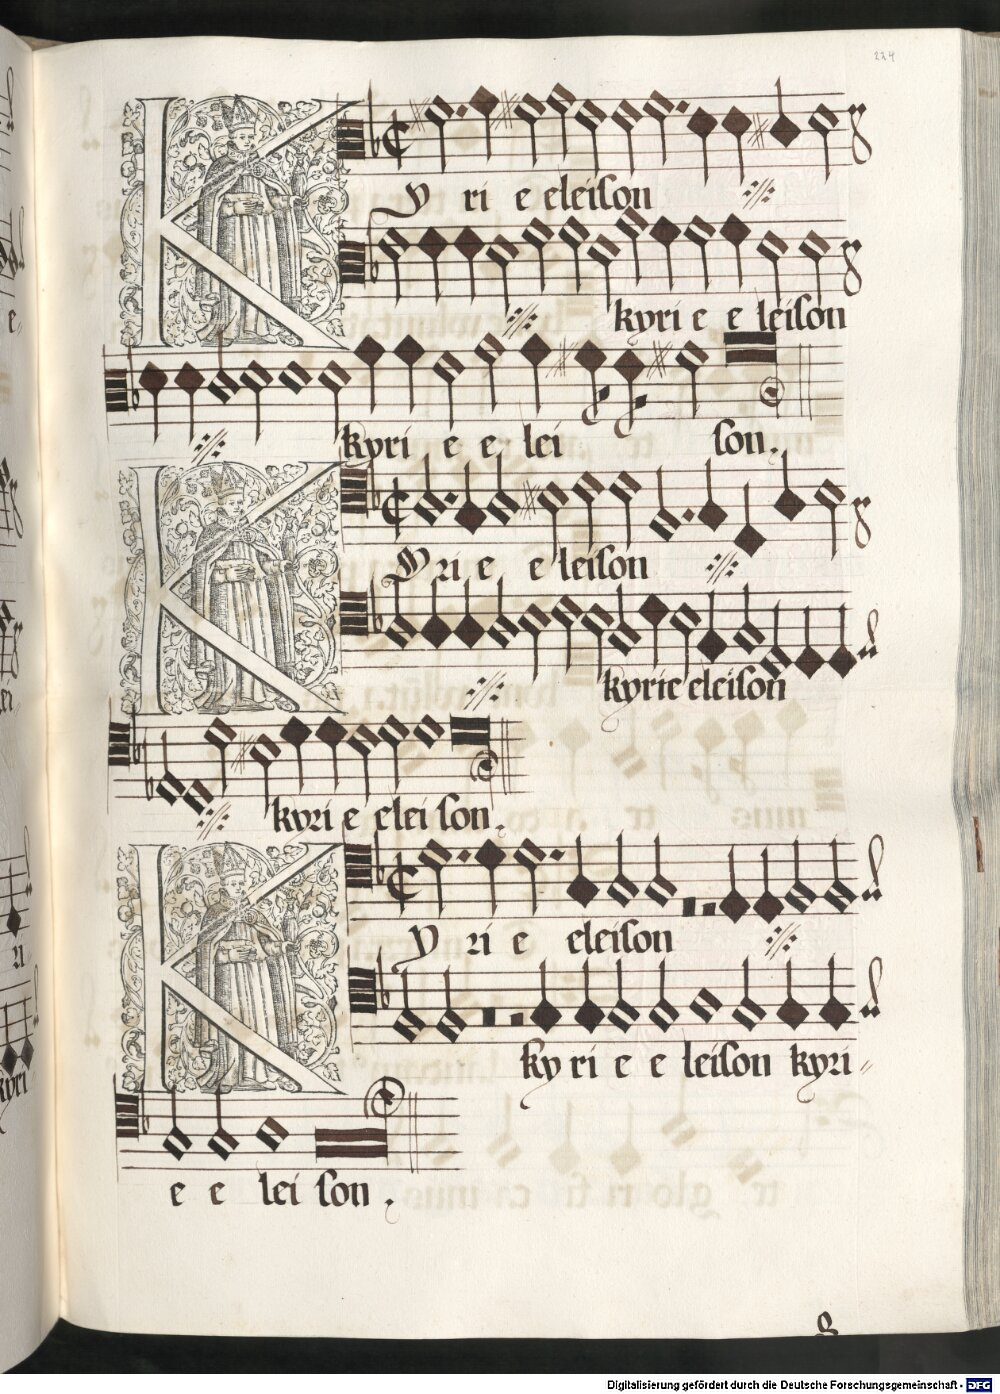 224
K
y ri e eleison
kyri e e leison
kyri e e lei son.
K
yri e e leison
kyrie eleison
kyri e elei son.
K
y ri e eleison
ky ri e e leison kyri
e e lei son.
Digitalisierung gefördert durch die Deutsche Forschungsgemeinschaft - DFG